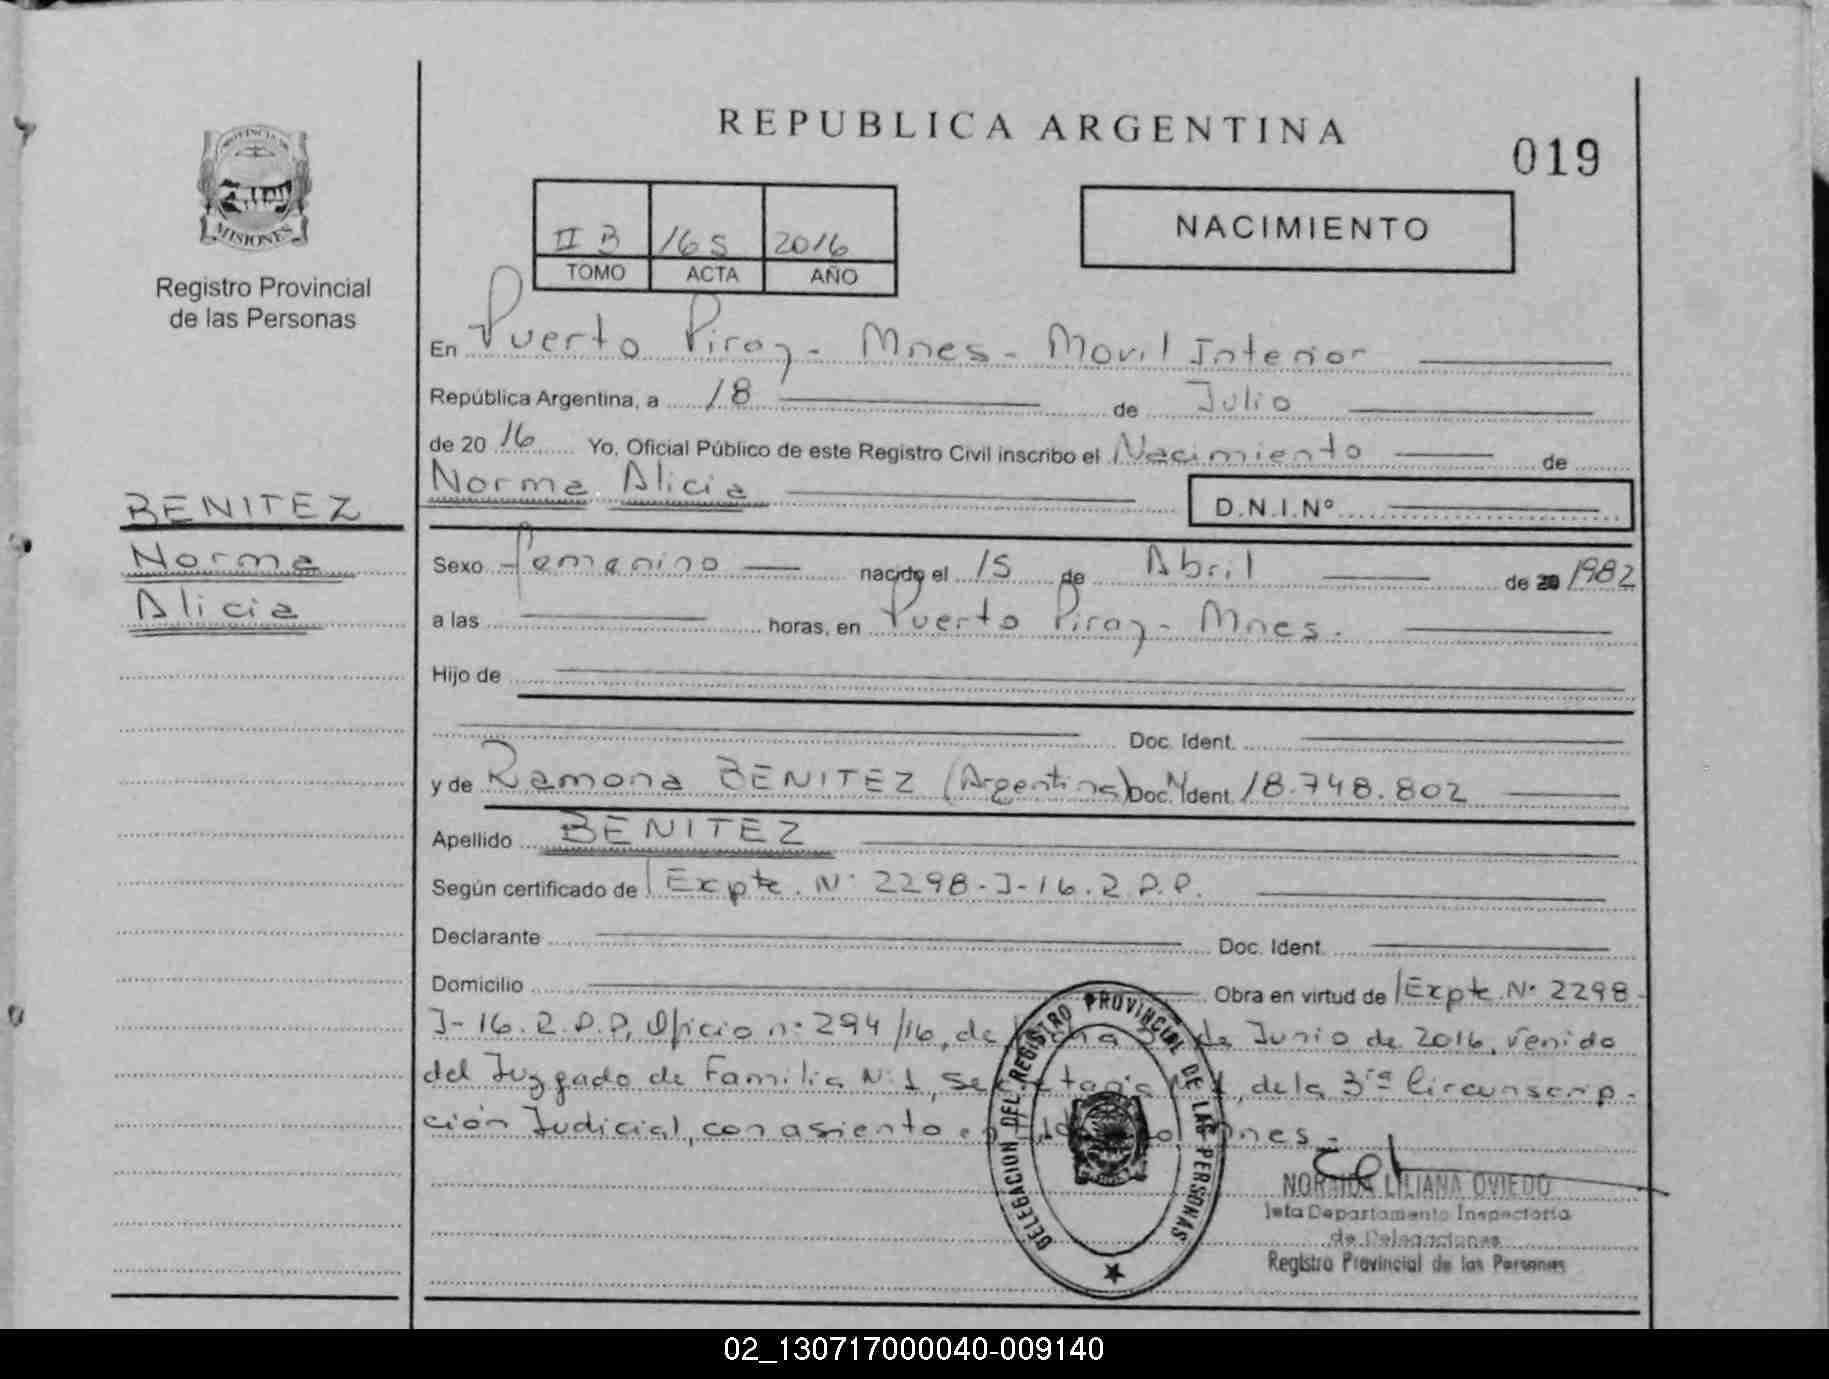 REPUBLICA ARGENTINA
019
PROVINCIA DE
MISIONES
Registro Provincial
de las Personas
II B 165 2016
TOMO ACTA AÑO
NACIMIENTO
En Puerto Piray - Mnes - Movil Interior
República Argentina, a 18 de Julio
de 20 16 Yo, Oficial Público de este Registro Civil inscribo el Nacimiento de
Norma Alicia D.N.I.Nº
BENITEZ
Norma
Alicia
Sexo Femenino nacido el 15 de Abril de 20 1982
a las horas, en Puerto Piray - Mnes.
Hijo de
Doc. Ident.
y de Ramona BENITEZ (Argentina) Doc. Ident. Nº 18.748.802
Apellido BENITEZ
Según certificado de Expte. Nº 2298-J-16.R.P.P.
Declarante Doc. Ident.
Domicilio Obra en virtud de Expte. Nº 2298-
J-16.R.P.P, Oficio nº 294/16, de de Junio de 2016, venido
del Juzgado de Familia Nº 1, Secretaría de la 3ra Circunscrip-
ción Judicial, con asiento en Mnes.-
DELEGACION DEL REGISTRO PROVINCIAL DE LAS PERSONAS
NORMA LILIANA OVIEDO
Jefa Departamento Inspectoria
de Delegaciones
Registro Provincial de las Personas
02_130717000040-009140